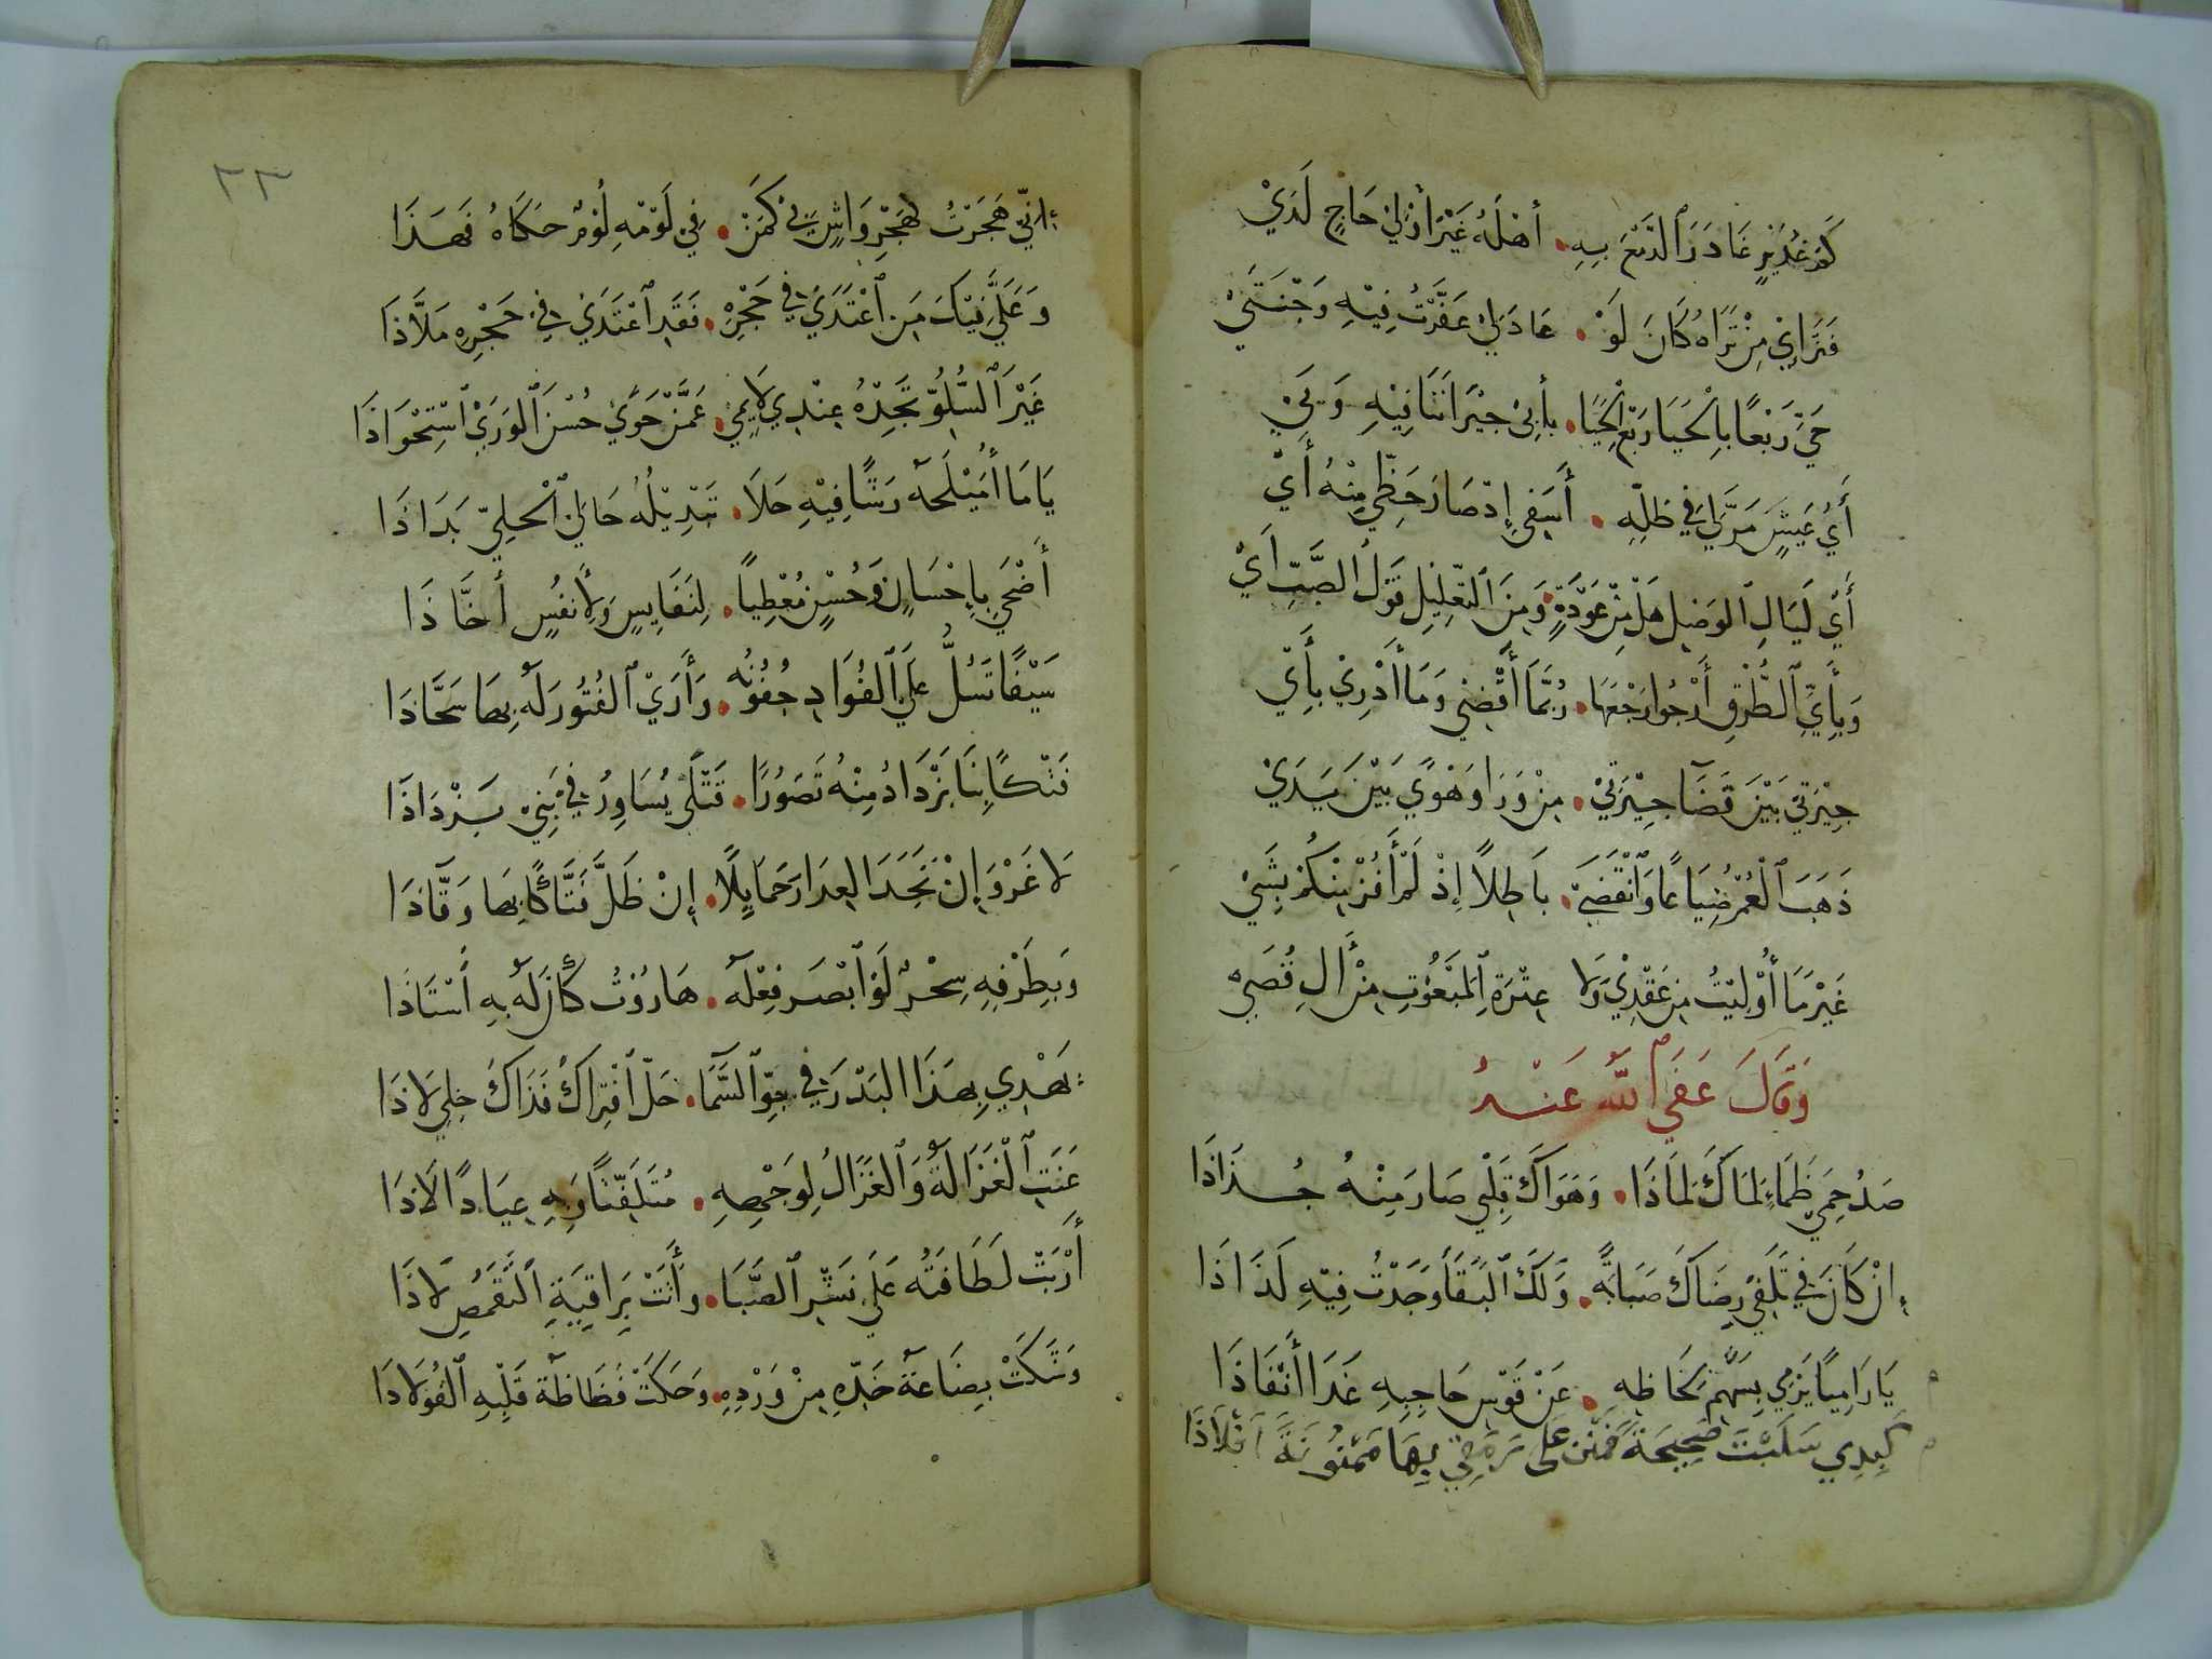 كَمْ غَدِيْرٍ غَادَرَ الدَّمْعُ بِهِ۰ أَهْلَهُ غَيْرَ أُولِيْ حَاجٍ لَدَيْ
فَثَرَايَ مِنْ ثَرَاهُ كَانَ لَوْ۰ عَادَ لِيْ عَفَّرْتُ فِيْهِ وَجْنَتَيْ
حَيِّ رَبْعًا بِالْحَيَا رَبْعَ الْحَيَا۰ بِأَبِيْ جِيْرَانَنَا فِيْهِ وَبَيْ
أَيُّ عَيْشٍ مَرَّ لِيْ فِي ظِلِّهِ۰ أَسَفِي إِذْ صَارَ حَظِّي مِنْهُ أَيْ
أَيْ لَيَالِ الوَصْلِ هَلْ مِنْ عَوْدَةٍ۰ وَمِنَ التَّعْلِيْلِ قَوْلُ الصَّبِّ أَيْ
وَبِأَيِّ الطُّرْقِ أَرْجُو رَجْعَهَا۰ رُبَّمَا أَقْضِيْ وَمَا أَدْرِيْ بِأَيْ
حِيْرَتِيْ بَيْنَ قَضَا جِيْرَتِيْ۰ مِنْ وَرَا وَهَوًى بَيْنَ يَدَيْ
ذَهَبَ الْعُمْرُ ضَيَاعًا وَانْقَضَى۰ بَاطِلاً إِذْ لَمْ أَفُزْ مِنْكُمْ بِشَيْ
غَيْرَ مَا أُوْلِيْتُ مِنْ عَقْدِيْ وَلَا عِتْرَةِ الْمَبْعُوْثِ مِنْ آلِ قُصَيْ
وَقَالَ عَفَى اللّٰهُ عَنْهُ
صَدٌّ حَمَى ظَمَاءِ لَمَاكَ لِمَاذَا۰ وَهَوَاكَ قَلْبِي صَارَ مِنْهُ جُذَاذَا
إِنْ كَانَ فِي تَلَفِي رِضَاكَ صَبَابَةً۰ وَلَكَ الْبَقَا وَجَدْتُ فِيْهِ لَذَاذَا
يَا رَامِيًا يَرْمِي بِسَهْمِ لَحَاظِهِ۰ عَنْ قَوْسِ حَاجِبِهِ غَدَا أَنْفَاذَا
كَبِدِي سَلَبْتَ صَحِيحَةً فَمُنْنُ عَلَى رَمَقِي بِهَا مَمْنُونَةً أَفْلَاذَا
٣٣
إِنِّي هَجَرْتُ لِهَجْرِ وَاشٍ بِيْ كَمَنْ۰ فِي لَوْمِهِ لُؤْمٌ حَكَاهُ فَهَذَا
وَعَلَيَّ فِيْكَ مَنِ اعْتَدَى فِي حَجْرِهِ۰ فَقَدِ اغْتَدَى فِي حَجْرِهِ مَلَّاذَا
غَيْرَ السُّلُوِّ تَجِدْهُ عِنْدِي لَايِمِي۰ عَمَّنْ حَوَى حُسْنَ الْوَرَى اسْتِحْوَاذَا
يَا مَا أُمَيْلَحَهُ رَشًا فِيْهِ حَلَا۰ تَبْدِيْلُهُ حَالِيْ الْحَلِيّ بَدَاذَا
أَضْحَى بِإِحْسَانٍ وَحُسْنٍ مُعْطِيًا۰ لِنَفَايِسٍ وَلِأَنْفُسٍ أَخَّاذَا
سَيْفًا تَسُلُّ عَلَى الْفُؤَادِ جُفُونُهُ۰ وَأَرَى الْفُتُورَ لَهُ بِهَا شَحَّاذَا
فَتْكًا بِنَا يَزْدَادُ مِنْهُ تَصَوُّرًا۰ قَتْلَى يُسَاوِرُ فِي بَنِيْ يَزْدَاذَا
لَا غَرْوَ إِنْ تَخِذَ الْعِذَارَ حَمَايِلًا۰ إِنْ ظَلَّ فَتَّاكًا بِهَا وَقَّاذَا
وَبِطَرْفِهِ سِحْرٌ لَوْ أَبْصَرَ فِعْلَهُ۰ هَارُوْتُ كَانَ لَهُ بِهِ أُسْتَاذَا
تَهْذِي بِهَذَا الْبَدْرِ فِي جَوِّ السَّمَا۰ خَلِّ افْتِرَاكَ فَذَاكَ خِلِّي لَا ذَا
عَنَتِ الْغَزَالَةُ وَالْغَزَالُ لِوَجْهِهِ۰ مُتَلَفِّتًا وَبِهِ عِيَاذًا لَاذَا
أَرْبَتْ لَطَافَتُه عَلَى نَشْرِ الصَّبَا۰ وَأَبَتْ تَرَافَتُهُ التَّقَمُّصَ لَاذَا
وَشَكَتْ بِضَاضَةُ خَدِّهِ مِنْ وَرْدِهِ۰ وَحَكَتْ فَظَاظَةُ قَلْبِهِ الْفُولَاذَا